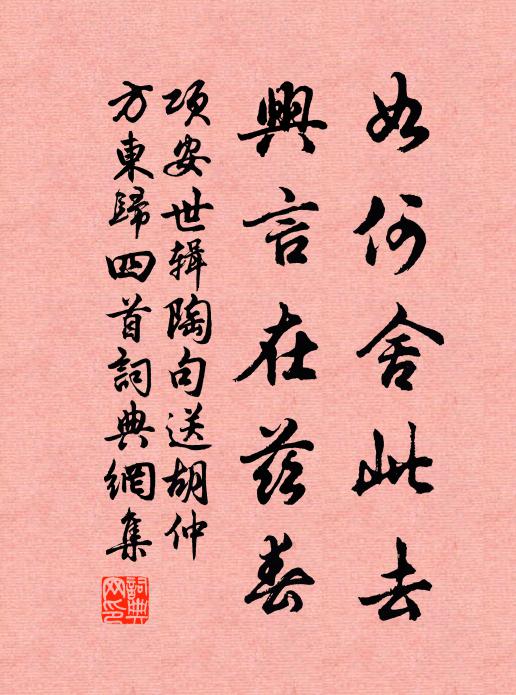 如何舍此去
興言在茲春
項安世辑陶句送胡仲
方東歸四首詞典網集
詞典
网印